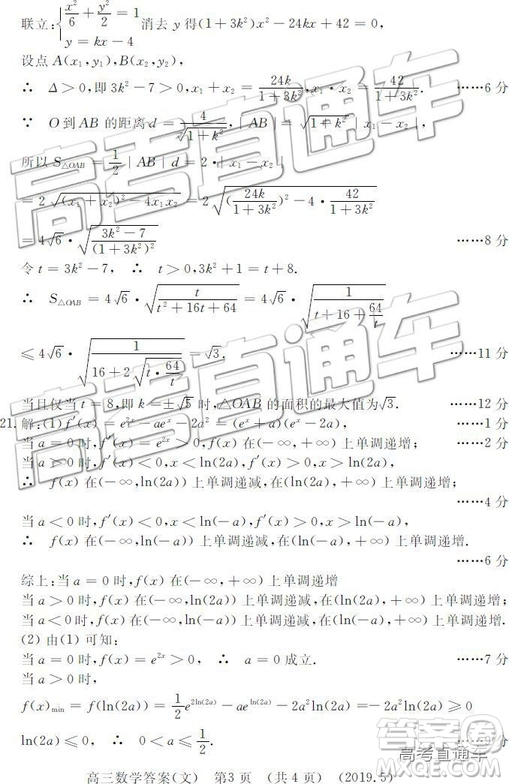 联立:{x²/6+y²/2=1, y=kx-4 消去 y 得(1+3k²)x²-24kx+42=0,
设点 A(x₁,y₁),B(x₂,y₂),
∴ Δ>0,即 3k²-7>0,x₁+x₂=24k/(1+3k²),x₁·x₂=42/(1+3k²). ……6 分
∵ O 到 AB 的距离 d=4/√(1+k²),|AB|=√(1+k²)|x₁-x₂|,
所以 S△OAB=1/2|AB|d=2·|x₁-x₂|
=2√((x₁+x₂)²-4x₁x₂)=2√((24k/(1+3k²))²-4·42/(1+3k²))
=4√6·√((3k²-7)/(1+3k²)²) ……8 分
令 t=3k²-7, ∴ t>0,3k²+1=t+8.
∴ S△OAB=4√6·√(t/(t²+16t+64))=4√6·√(1/(t+16+64/t))
≤4√6·√(1/(16+2√(t·64/t)))=√3, ……11 分
当且仅当 t=8,即 k=±√5 时,△OAB 的面积的最大值为√3. ……12 分
21.解:(1)f′(x)=e²ˣ-aeˣ-2a²=(eˣ+a)(eˣ-2a) ……1 分
当 a=0 时,f′(x)=e²ˣ>0,f(x)在(-∞,+∞)上单调递增; ……2 分
当 a>0 时,f′(x)<0,x<ln(2a),f′(x)>0,x>ln(2a),
∴ f(x)在(-∞,ln(2a))上单调递减,在(ln(2a),+∞)上单调递增;
……4 分
当 a<0 时,f′(x)<0,x<ln(-a),f′(x)>0,x>ln(-a),
∴ f(x)在(-∞,ln(-a))上单调递减,在(ln(-a),+∞)上单调递增.
……6 分
综上:当 a=0 时,f(x)在(-∞,+∞)上单调递增
当 a>0 时,f(x)在(-∞,ln(2a))上单调递减,在(ln(2a),+∞)上单调递增;
当 a<0 时,f(x)在(-∞,ln(-a))上单调递减,在(ln(-a),+∞)上单调递增.
(2)由(1)可知:
当 a=0 时,f(x)=e²ˣ>0, ∴ a=0 成立. ……7 分
当 a>0 时,
f(x)min=f(ln(2a))=1/2e^(2ln(2a))-ae^(ln(2a))-2a²ln(2a)=-2a²ln(2a)≥0
ln(2a)≤0, ∴ 0<a≤1/2.
高三数学答案(文) 第3页 (共4页) (2019.5)
高考直通车
高考直通车
高考直通车
答案圈